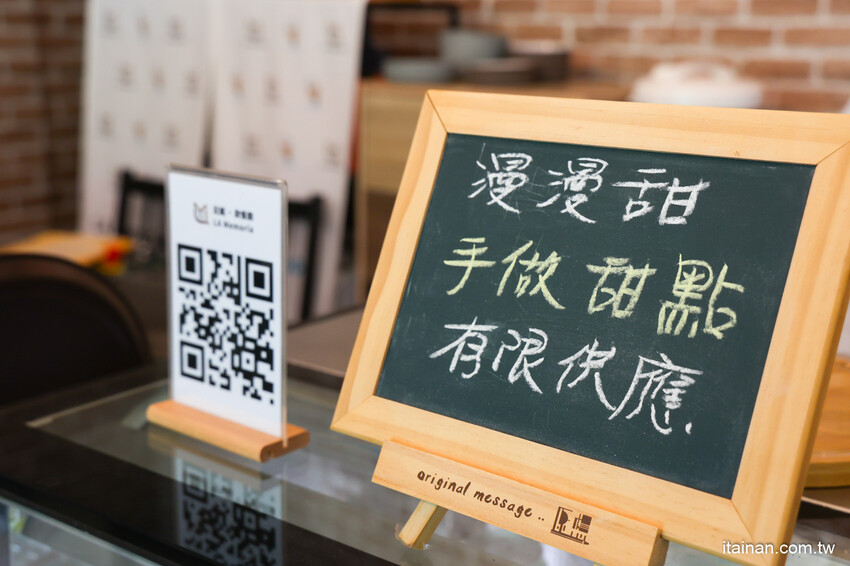 LA Memoria
漫漫甜
手做甜點
有限供應
original message..
itainan.com.tw